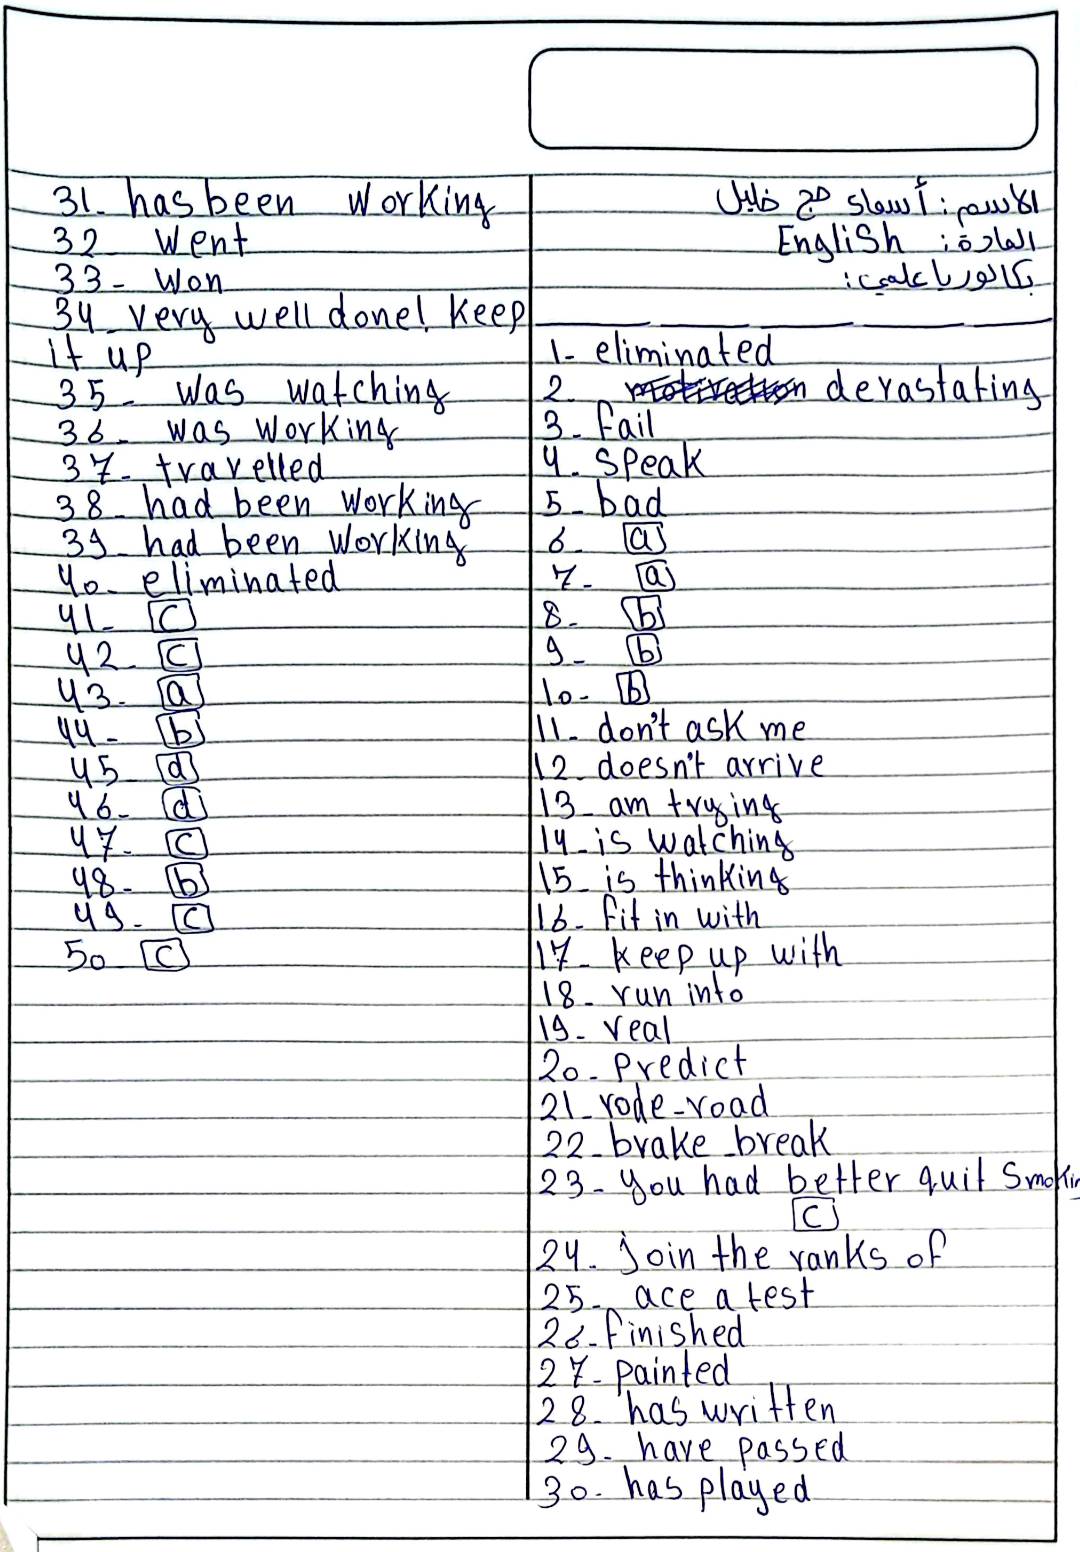 الاسم: أسماء حج خليل
المادة: EngliSh
بكالوريا علمي:
1- eliminated
2. devastating
3- fail
4- speak
5- bad
6- a
7- a
8- b
9- b
10- b
11- don't ask me
12- doesn't arrive
13- am trying
14- is watching
15- is thinking
16- fit in with
17- keep up with
18- run into
19- real
20- Predict
21- rode-road
22- brake-break
23- you had better quit Smokin
C
24- Join the ranks of
25- ace a test
26- finished
27- painted
28- has written
29- have passed
30- has played
31- has been working
32 went
33- won
34- very well done! keep
it up
35- was watching
36- was working
37- travelled
38- had been working
39- had been working
40- eliminated
41- C
42- C
43- a
44- b
45- d
46- d
47- C
48- b
49- C
50- C